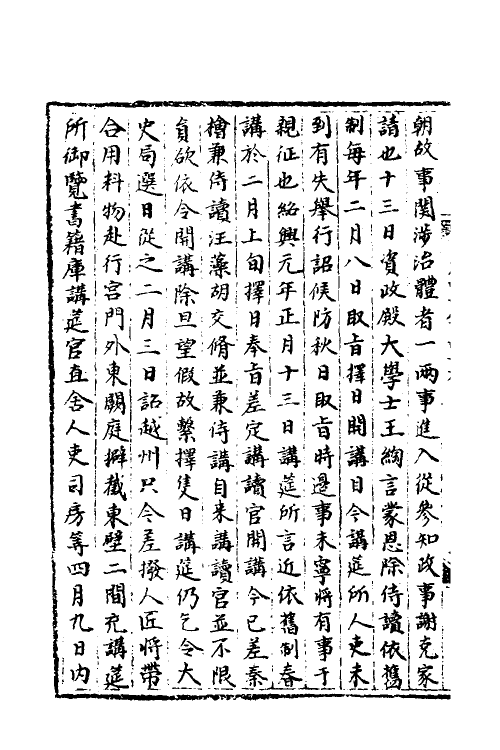 朝故事關涉治體者一兩事進入從參知政事謝克家
請也十三日資政殿大學士王綯言蒙恩除侍讀依舊
制每年二月八日取旨擇日開講日今講筵所人吏未
到有失舉行詔候防秋日取旨時邊事未寧將有事于
親征也紹興元年正月十三日講筵所言近依舊制春
講於二月上旬擇日奉旨差定講讀官開講今已差秦
檜兼侍讀汪藻胡交脩並兼侍講自来講讀官並不限
員欲依令開講除旦望假故繫擇隻日講筵仍乞令大
史局選日從之二月三日詔越州只令差撥人匠將帶
合用料物赴行宫門外東闕庭擗截東壁二間充講筵
所御覽書籍庫講筵官直舍人吏司房等四月九日内